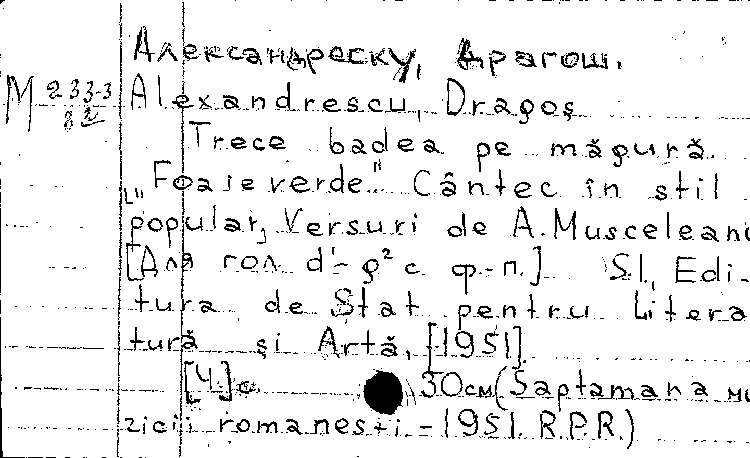 Александреску, Драгош.
М 233-3 Alexandrescu, Dragoş
82
Trece badea pe măgură
„Foaie verde." Cântec în stil
popular, Versuri de A. Musceleanu
[Для гол. d'-g² с ф.-п.] S.l., Edi-
tura de Stat pentru Litera
tură şi Artă, [1951].
[4] с. 30см (Saptamana mu
zicii romanesti - 1951. R.P.R.)